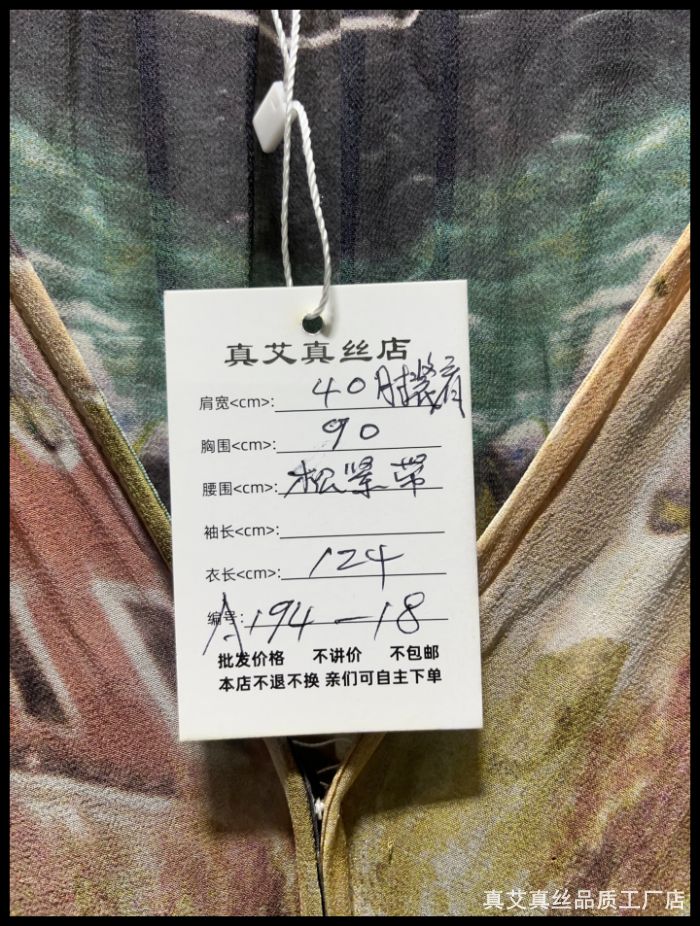 真艾真丝店
肩宽<cm>: 40
胸围<cm>: 90
腰围<cm>: 松紧带
袖长<cm>:
衣长<cm>: 124
编号: A194-18
批发价格 不讲价 不包邮
本店不退不换 亲们可自主下单
真艾真丝品质工厂店